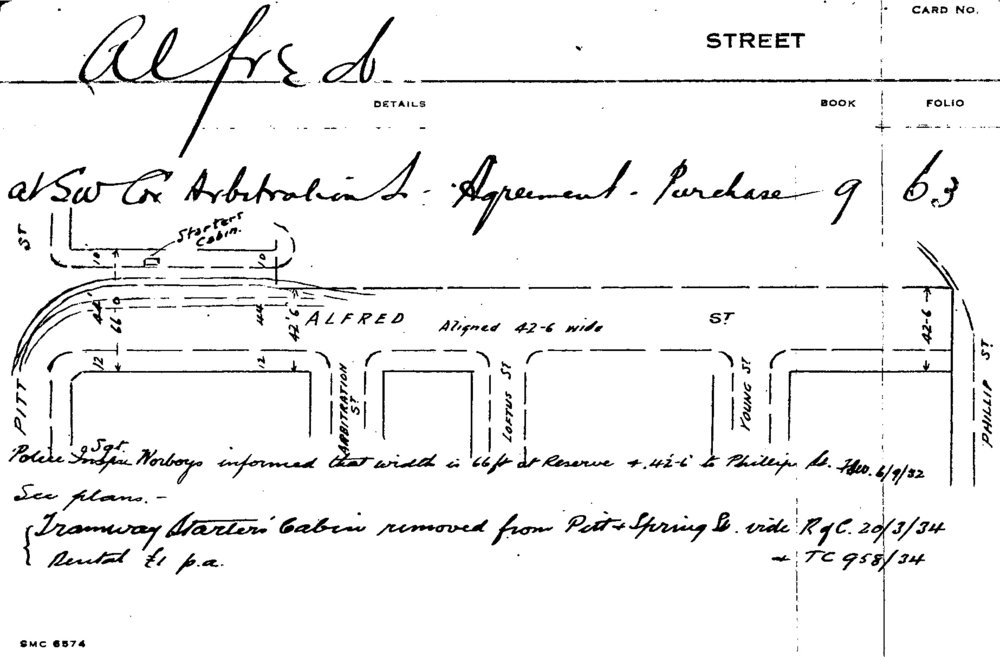 CARD NO.
Alfred STREET
DETAILS BOOK FOLIO
at SW Cor Arbitration St - Agreement - Purchase 9 63
ST
Starters
Cabin.
10 10
44' 66-0 44 42'6" ALFRED Aligned 42-6 wide ST 42-6
12 12
PITT
ARBITRATION
ST
LOFTUS ST
YOUNG ST
PHILLIP ST
Sgt
Police Norboys informed that width is 66ft at Reserve + 42-6 to Phillip St. 6/9/32
See plans. -
Tramway Starters' Cabin removed from Pitt + Spring St. vide R of C. 20/3/34
Rental £1 p.a. + TC 958/34
SMC 6574